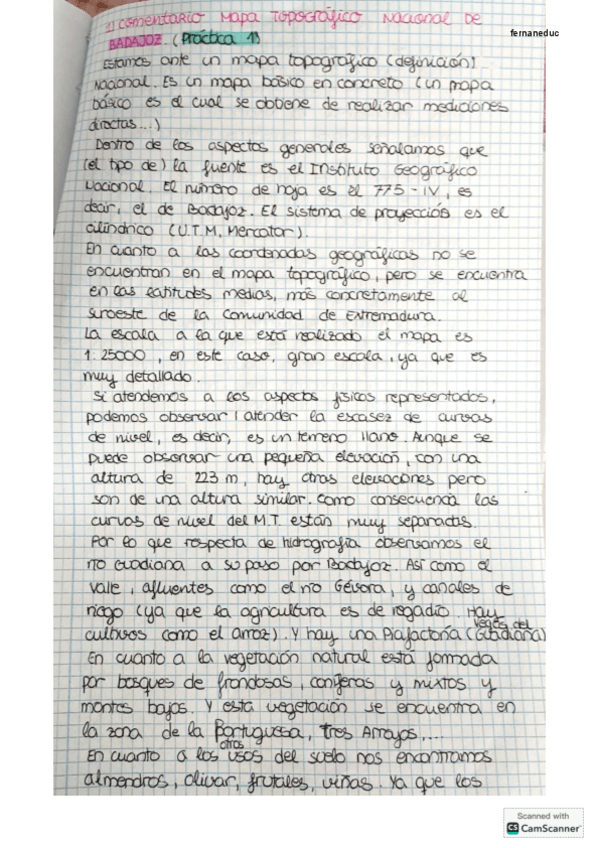 2) Comentario Mapa Topográfico Nacional de
BADAJOZ. (Práctica 1)
fernaneduc
Estamos ante un mapa topográfico (definición)
Nacional. Es un mapa básico en concreto (un mapa
básico es el cual se obtiene de realizar mediciones
directas...)
Dentro de los aspectos generales señalamos que
(el tipo de) la fuente es el Instituto Geográfico
Nacional. El número de hoja es el 775-IV, es
decir, el de Badajoz. El sistema de proyección es el
cilíndrico (U.T.M. Mercator).
En cuanto a las coordenadas geográficas no se
encuentran en el mapa topográfico, pero se encuentra
en las latitudes medias, más concretamente al
suroeste de la Comunidad de Extremadura.
La escala a la que está realizado el mapa es
1:25000, en este caso, gran escala, ya que es
muy detallado.
Si atendemos a los aspectos físicos representados,
podemos observar / atender la escasez de curvas
de nivel, es decir, es un terreno llano. Aunque se
puede observar una pequeña elevación, con una
altura de 223 m, hay otras elevaciones pero
son de una altura similar. Como consecuencia las
curvas de nivel del M.T. están muy separadas.
Por lo que respecta de hidrografía observamos el
río Guadiana a su paso por Badajoz. Así como el
valle, afluentes como el río Gévora, y canales de
riego (ya que la agricultura es de regadío. Hay
cultivos como el arroz). Y hay una (Guadiana)
vegas del
En cuanto a la vegetación natural está formada
por bosques de frondosas, coníferas y mixtos y
montes bajos. Y esta vegetación se encuentra en
la zona de la Portuguesa, Tres Arroyos,...
En cuanto a los otros usos del suelo nos encontramos
almendros, olivar, frutales, viñas. Ya que los
Scanned with
CS CamScanner